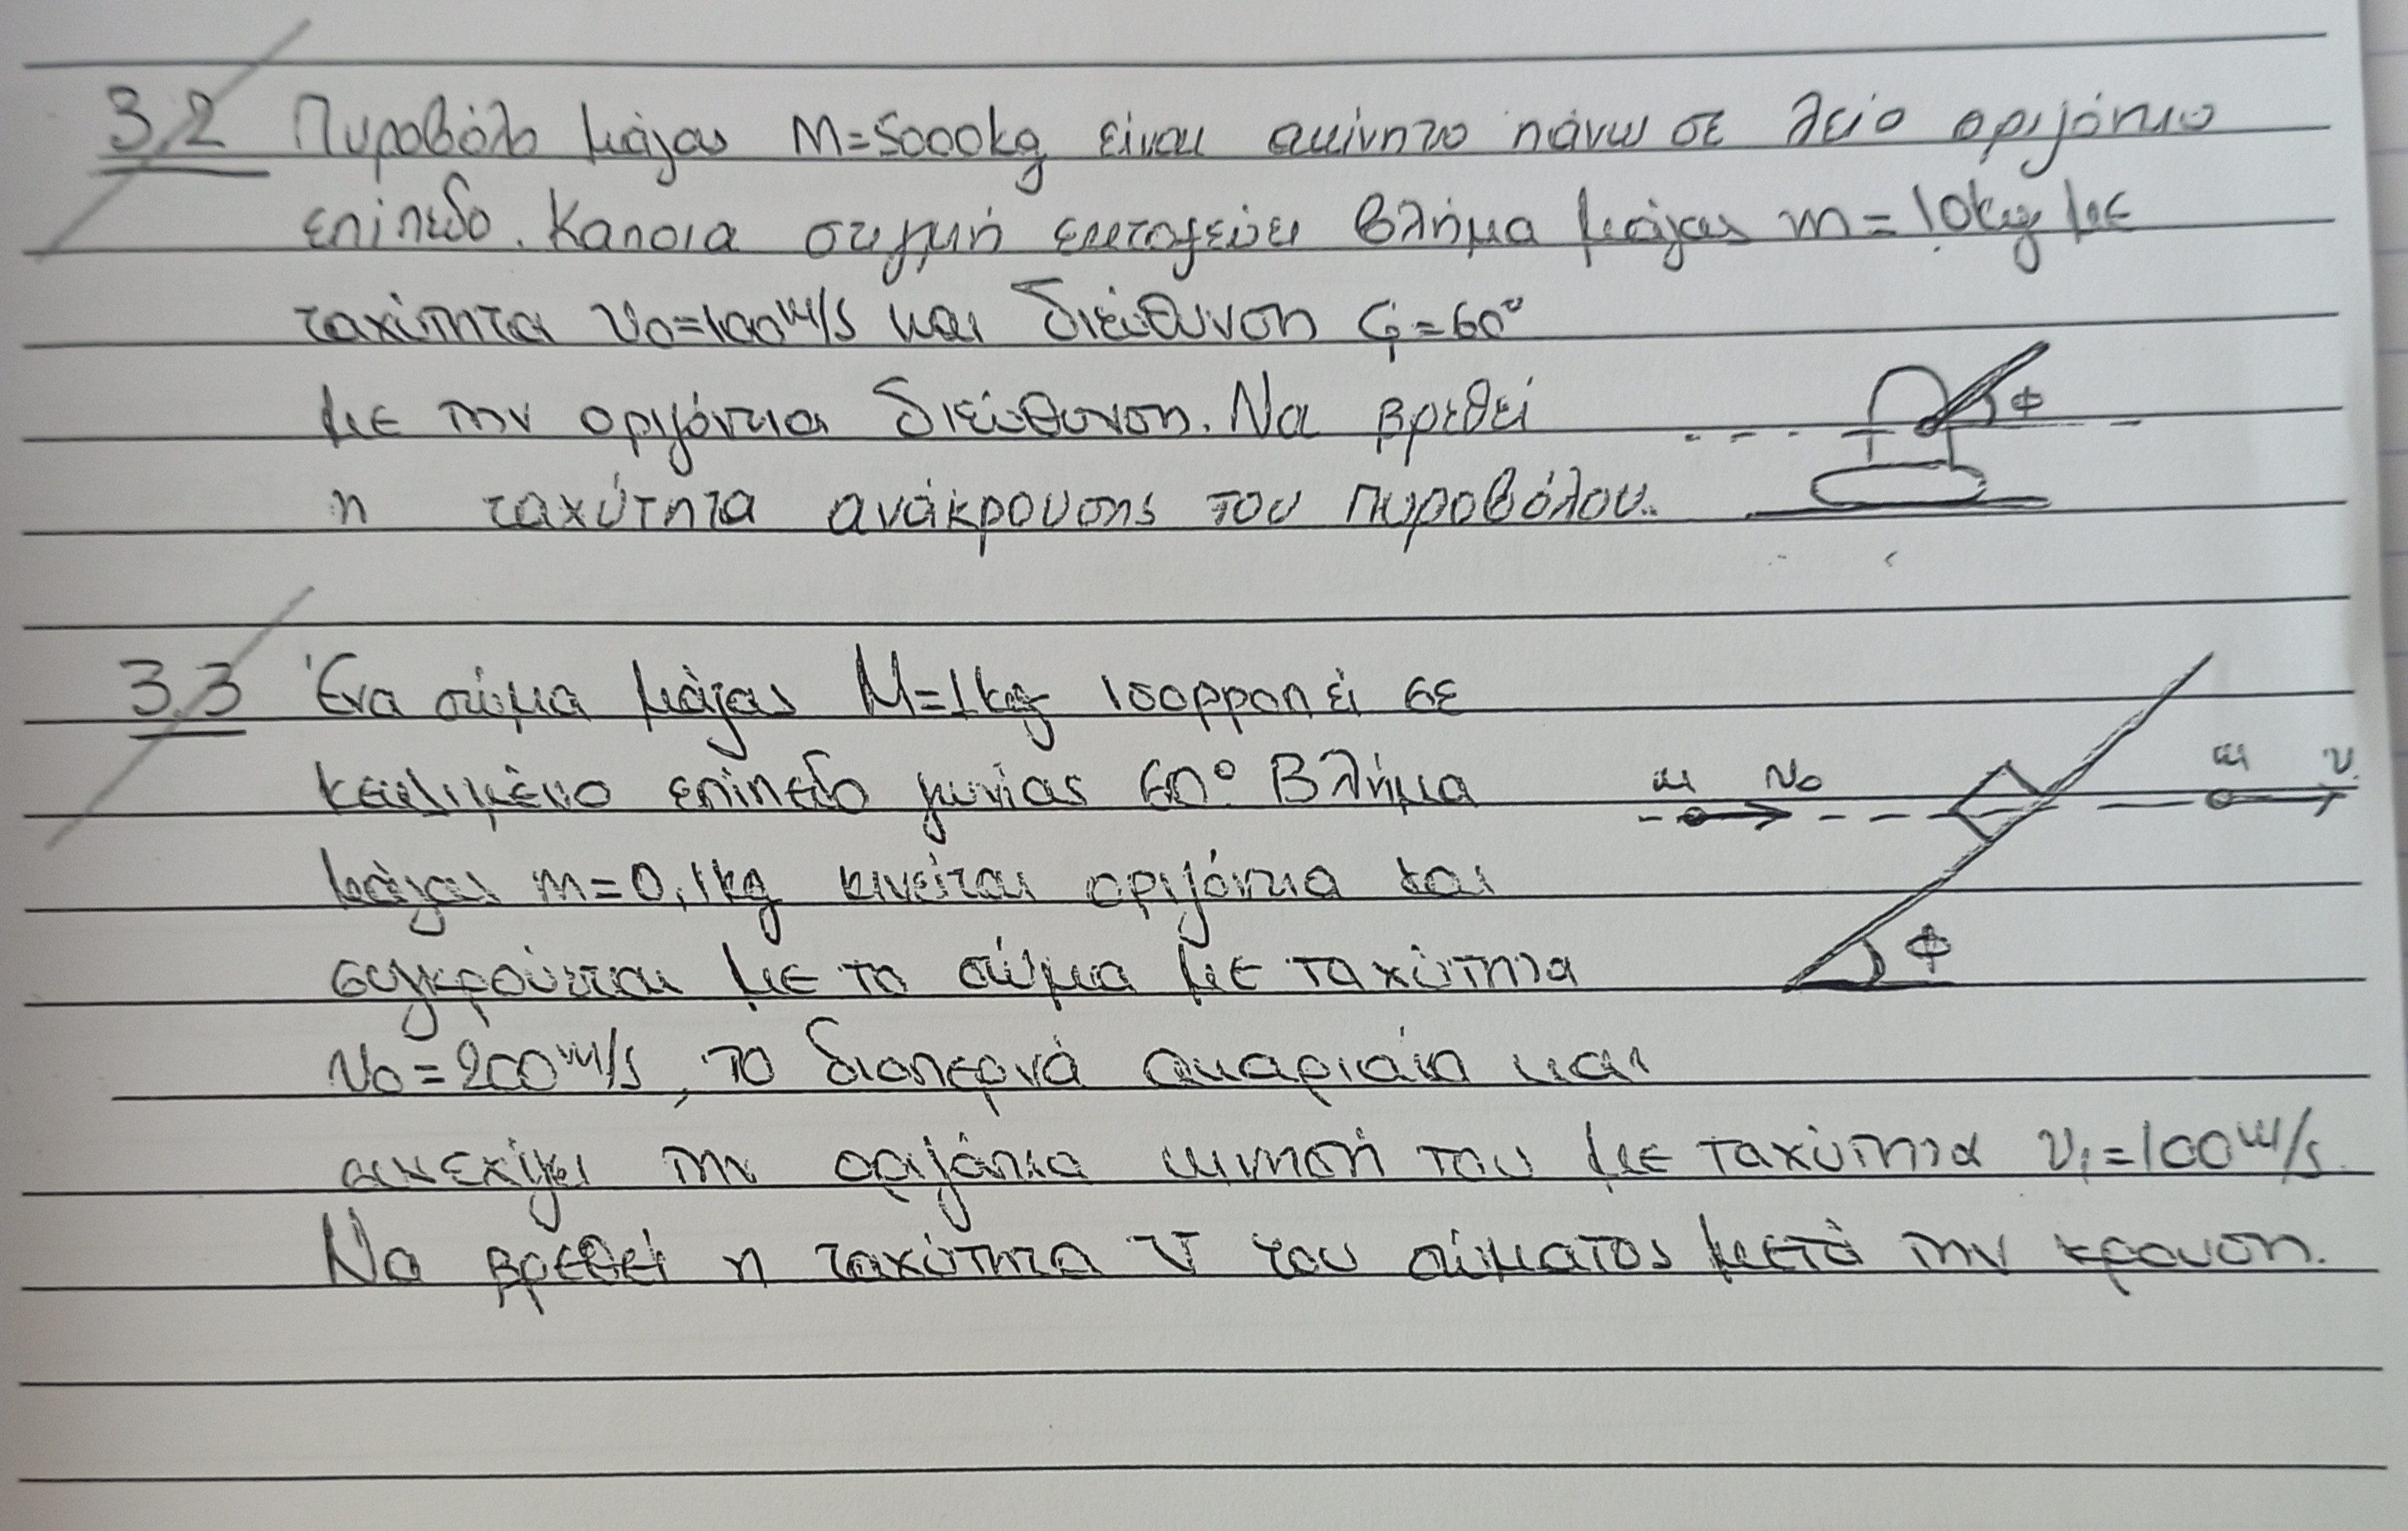 3.2 Πυροβόλο μάζας M=5000kg είναι ακίνητο πάνω σε λείο οριζόντιο
επίπεδο. Καποια στιγμή εκτοξεύει βλήμα μάζας m=10kg με
ταχύτητα υ0=100m/s και διεύθυνση φ=60°
με την οριζόντια διεύθυνση. Να βρεθεί
η ταχύτητα ανάκρουσης του πυροβόλου.
φ
3.3 Ένα σώμα μάζας M=1kg ισορροπεί σε
κεκλιμένο επίπεδο γωνίας 60°. Βλήμα
μάζας m=0,1kg κινείται οριζόντια και
συγκρούεται με το σώμα με ταχύτητα
υ0=200m/s, το διαπερνά ακαριαία και
συνεχίζει την οριζόντια κίνησή του με ταχύτητα υ1=100m/s.
Να βρεθεί η ταχύτητα υ του σώματος μετά την κρουση.
m υ0
m υ
φ